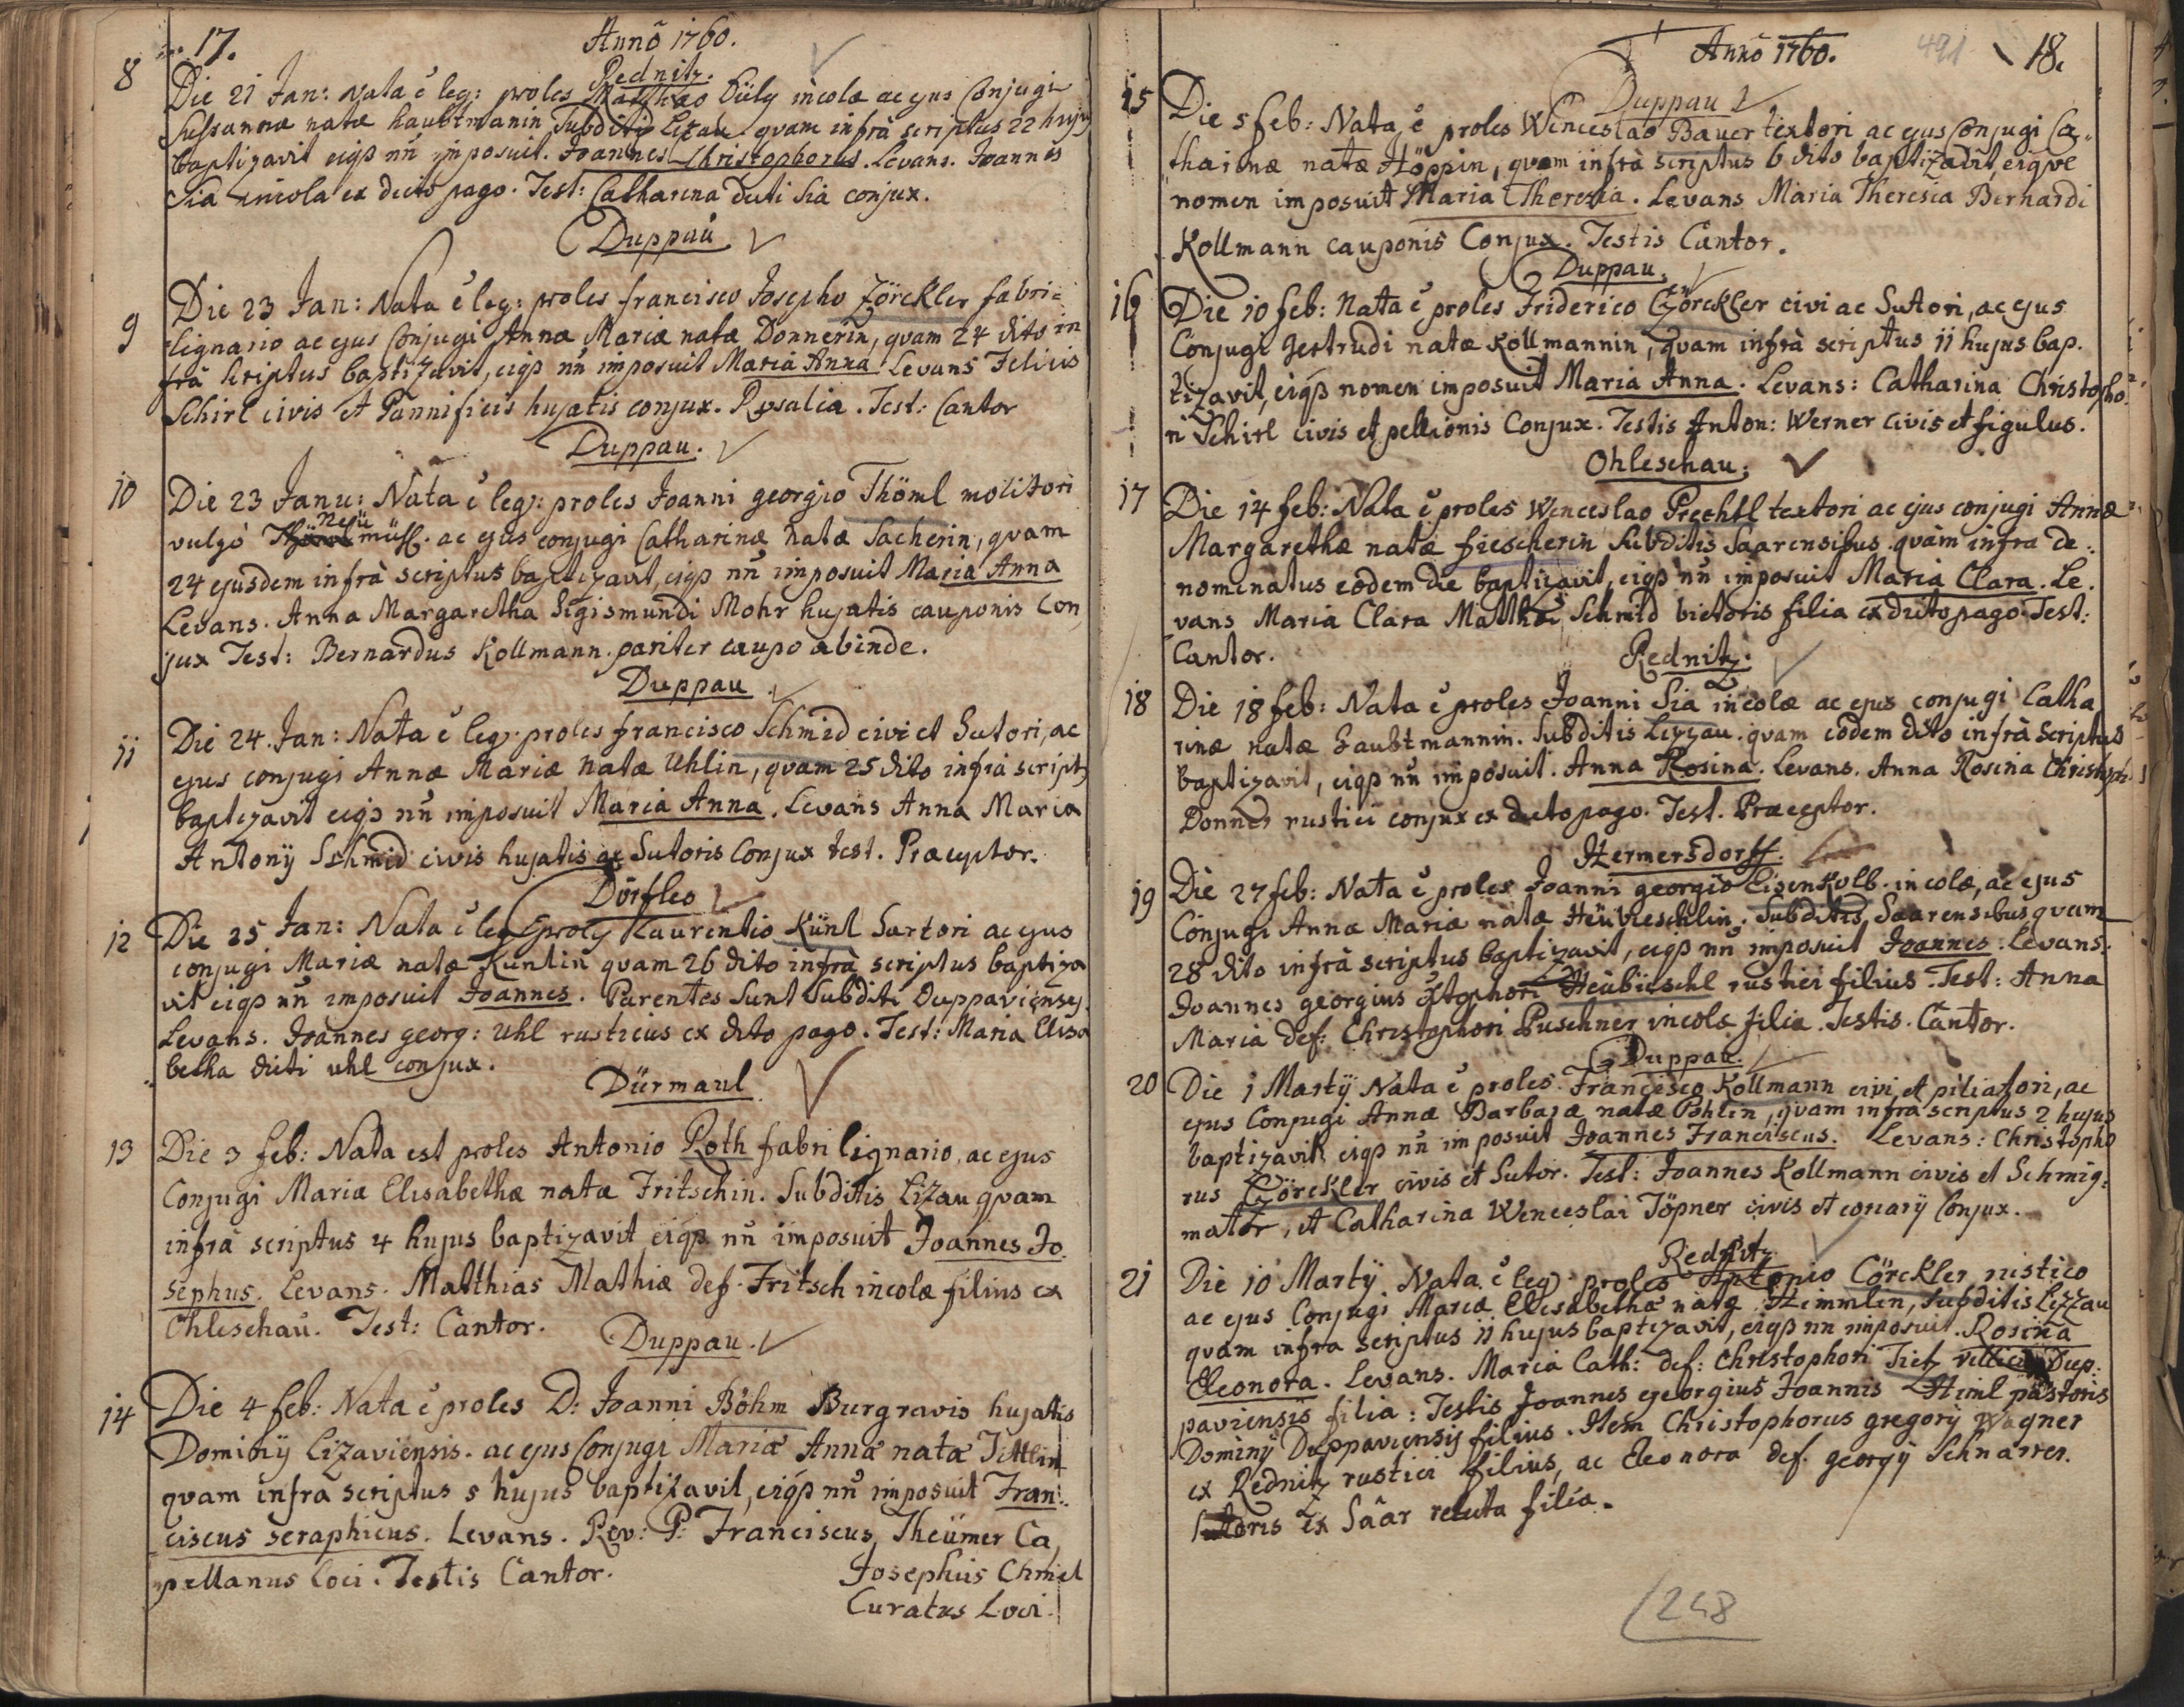 17.
Anno 1760.
Rednitz.
8 Die 21 Jan: Nata ẽ leg: proles Matthæo incolæ ac ejus Conjugi
Sussannæ natæ haubtmanin Subditis Lizau. quam infrà scriptus 22 hujus
baptizavit eiqз nn̄ imposuit. Joannes Christophorus. Levans. Joannes
Sia incola ex dicto pago. Test: Catharina dicti Sia conjux.
Duppau
9 Die 23 Jan: Nata ẽ leg: proles francisco Josepho Zörckler fabri=
lignario ac ejus Conjugi Annæ Mariæ natæ Donnerin, quam 24 dito in
frà scriptus baptizavit, eiqз nn̄ imposuit Maria Anna. Levans Felicis
Schirl civis et Pannificis hujatis conjux. Rosalia. Test: Cantor
Duppau.
10 Die 23 Janu: Nata ẽ leg: proles Joanni georgio Thöml molitori
vulgò Neü müll. ac ejus conjugi Catharinæ natæ Sacherin, quam
24 ejusdem infrà scriptus baptizavit, eiqз nn̄ imposuit Maria Anna
Levans. Anna Margaretha Sigismundi Mohr hujatis cauponis Con
jux Test: Bernardus Kollmann. pariter caupo abinde.
Duppau
11 Die 24. Jan: Nata ẽ leg: proles francisco Schmid civi et Sutori, ac
ejus conjugi Annæ Mariæ natæ Uhlin, quam 25 dito infrà script9
baptizavit eiqз nn̄ imposuit Maria Anna. Levans Anna Maria
Antonÿ Schmid civis hujatis ac Sutoris Conjux test. Præceptor.
Dörfles
12 Die 25 Jan: Nata ẽ leg proles Laurentio Künl Sartori ac ejus
conjugi Mariæ natæ Kunlin quam 26 dito infrà scriptus baptiza
vit eiqз nn̄ imposuit Joannes. Parentes Sunt Subditi Duppavienses.
Levans. Joannes georg: Uhl rusticus ex dito pago. Test: Maria Elisa
betha dicti uhl conjux.
Dürmaul
13 Die 3 feb: Nata est proles Antonio Roth fabri lignario, ac ejus
Conjugi Mariæ Elisabethæ natæ Fritschin. Subditis Lizau, quam
infrà scriptus 4 hujus baptizavit eiqз nn̄ imposuit Joannes Jo
sephus. Levans. Matthias Mathiæ def. Fritsch incolæ filius ex
Ohleschau. Test: Cantor.
Duppau.
14 Die 4 feb: Nata ẽ proles D: Joanni Böhm Burgravio hujatis
Dominÿ Lizaviensis. ac ejus Conjugi Mariæ Annæ natæ Tittlin
quam infra scriptus 5 hujus baptizavit, eiqз nn̄ imposuit Fran:
ciscus seraphicus. Levans. Rev: P: Franciscus Theümer Ca,
pellanus loci. Testis Cantor.
Josephus Chmel
Curatus Loci.
Anno 1760.
491
18.
Duppau
15 Die 5 feb: Nata ẽ proles Wenceslao Bauer textori ac ejus Conjugi Ca,,
tharinæ natæ Höppin, quam infrà scriptus 6 dito baptizavit, eique
nomen imposuit Maria Theresia. Levans Maria Theresia Bernardi
Kollmann cauponis Conjux. Testis Cantor.
Duppau.
16 Die 10 feb: Nata ẽ proles Friderico Czörckler civi ac Sutori, ac ejus
Conjugi Gertrudi natæ Kollmannin, quam infrà scriptus 11 hujus bap.
tizavit, eiqз nomen imposuit Maria Anna. Levans: Catharina Christopho
ri Schirl civis et pellionis Conjux. Testis Anton: Werner civis et figulus.
Ohleschau.
17 Die 14 feb: Nata ẽ proles Wenceslao Prechtl textori ac ejus conjugi Annæ
Margarethæ natæ fiescherin Subditis Saarensibus quàm infra de:
nominatus eodem die baptizavit, eiqз nn̄ imposuit Maria Clara. Le.
vans Maria Clara Matthæi Schmid bietoris filia ex dicto pago Test:
Cantor.
Rednitz.
18 Die 18 feb: Nata ẽ proles Joanni Sia incolæ ac ejus conjugi Catha
rinæ natæ Haubtmannin. Subditis Lizzau. quam eodem dito infrà Scriptus
baptizavit, eiqз nn̄ imposuit. Anna Rosina. Levans. Anna Rosina Christoph:
Donner rustici conjux ex dicto pago. Test. Præceptor.
Hermersdorff.
19 Die 27 feb: Nata ẽ proles Joanni georgio Eisenkolb. incolæ, ac ejus
Conjugi Annæ Mariæ natæ Heübieschlin. Subditis Saarensibus quam
28 dito infrà scriptus baptizavit, eiqз nn̄ imposuit Joannes. Levans:
Joannes georgius Xstophori Heübieschl rustici filius. Test: Anna
Maria def: Christophori Puschner incolæ filia. Testis. Cantor.
Duppau.
20 Die 1 Martÿ Nata ẽ proles. Francisco Kollmann civi et pileatori, ac
ejus Conjugi Annæ Barbaræ natæ Pohlin, quam infra scriptus 2 hujus
baptizavit eiqз nn̄ imposuit Joannes Franciscus. Levans: Christopho
rus Czörckler civis et Sutor. Test: Joannes Kollmann civis et Schmig:
mator, et Catharina Wenceslai Töpner civis et coriarÿ Conjux.
Rednitz
21 Die 10 Martÿ Nata ẽ leg: proles Antonio Cörckler rustico
ac ejus Conjugi Mariæ Elisabethæ natæ Himmlin, Subditis Lizzau
quam infra scriptus 11 hujus baptizavit, eiqз nn imposuit. Rosina
Eleonora. Levans. Maria Cath: def: Christophori Tietz villici Dup.
paviensis filia: Testis Joannes georgius Joannis Himl pastoris
Dominÿ Duppaviensis filius. Item Christophorus gregorÿ Wagner
ex Rednitz rustici filius, ac Eleonora def. georgÿ Schnarrer.
Sutoris Ex Saar relicta filia.
248